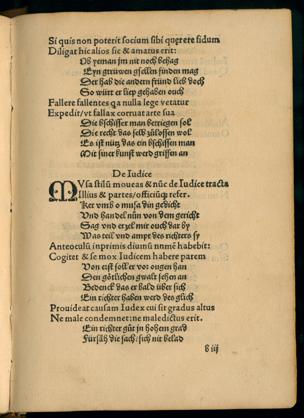 Si quis non poterit socium sibi querere fidum
Diligat hic alios sic & amatus erit:
Ob yeman jm nit noch behag
Eyn getruwen gsellen finden mag
Der hab die andern fründ lieb doch
So würt er liep gehaben ouch
Fallere fallentes qa nulla lege vetatur
Expedit/vt fallax corruat arte sua
Die bschisser man betriegen sol
Die recht das selb zůlossen wol
Es ist nütz das ein bschissen man
Mit siner kunst werd griffen an
De Iudice
MVsa stilū moueas & nūc de Iudice tracta
Illius & partes/officiūq3 refer.
Ker vmb o musa din gedicht
Vnd handel nůn von dem gericht
Sag vnd erzel mir ouch dar by
Was teil vnd ampt des richters sy
Anteoculū inprimis diuinū numē habebit:
Cogitet & se mox Iudicem habere parem
Von erst soll er vor ougen han
Den götlichen gwalt sehen an
Bedenck das er bald über sich
Ein richter haben werd des glich
Prouideat causam Iudex cui sit gradus altus
Ne male condemnet: ne maledictus erit.
Ein richter gůt jn hohem grad
Fürsäh die sach/ sich nit belad
b iij